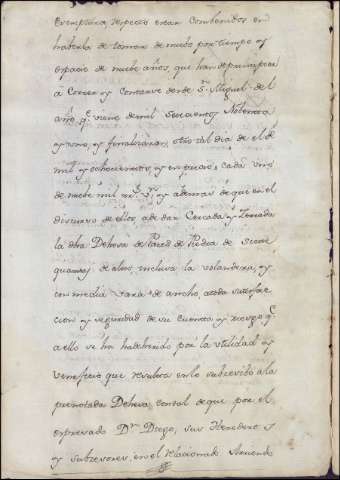 exemptiva, respecto estar combenidos en
haberla de tomar de nuebo por tiempo y
espacio de nuebe años, que han de prinzipiar
a Correr y Contarse desde Sn Miguel del
año qe viene de mil Setecientos Nobenta
y uno, y finalizaran otro tal dia de el de
mil y ochocientos, y en precio, cada uno
de nuebe mil rrs. Vn y ademas de que en el
discurso de ellos, a de dar Cercada y Zerrada
la dha Dehesa de Pared de Piedra de Siete
quartas de altos, inclusa la volandera, y
con media vara de ancho, a toda satisfac
cion y seguridad de su Cuenta y riesgo qe
a ello se ha habenido por la utilidad y
veneficio que resultara en lo subcesibo a la
prenotada Dehesa, con tal de que por el
expresado Dn Diego, sus Herederos
y subcesores, en el relacionado Arriendo